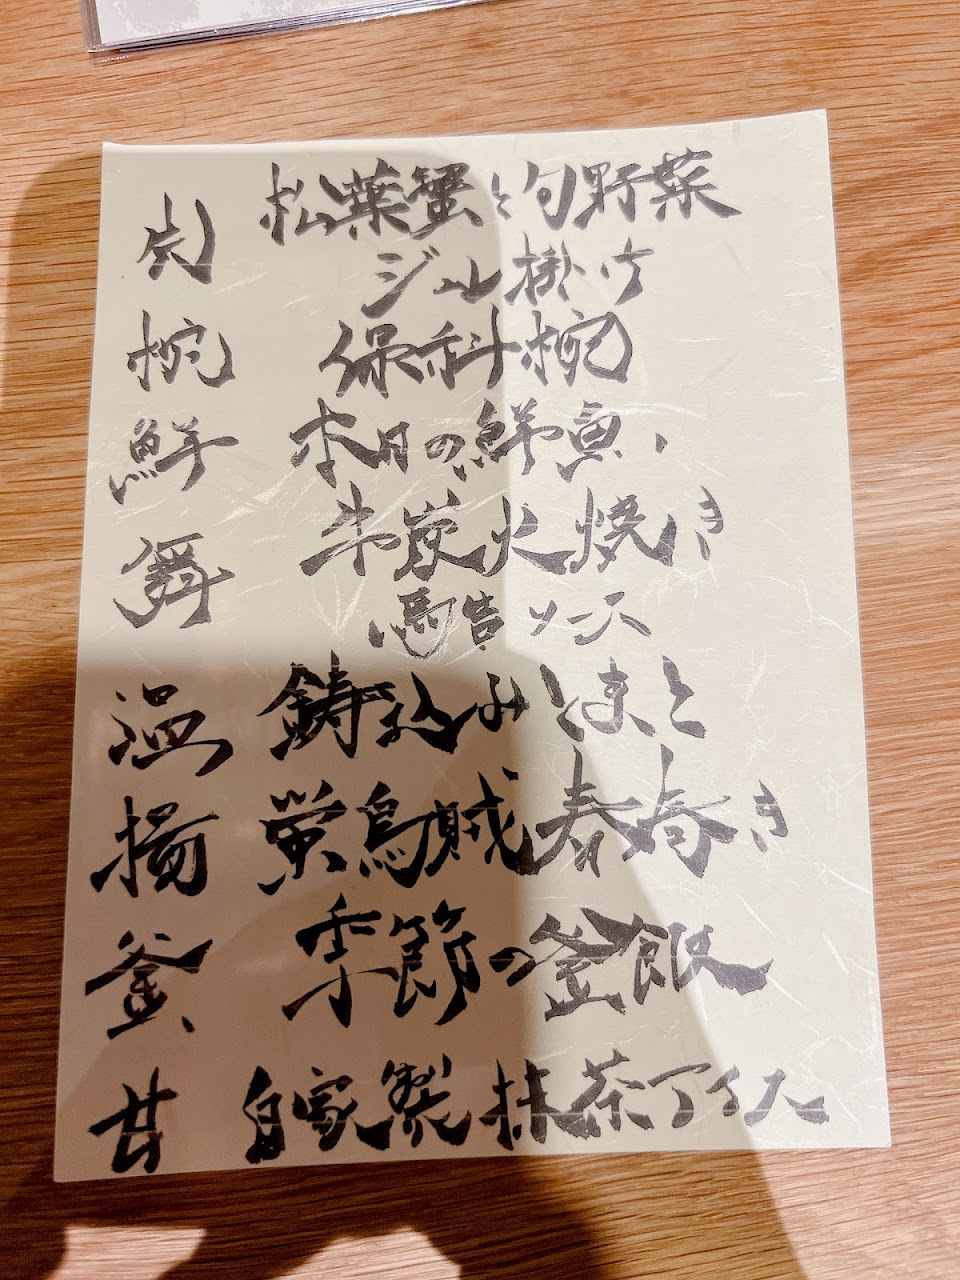 松葉蟹と旬野菜
ジュレ掛け
椀 保科椀
鮮 本日の鮮魚
牛炭火焼き
馬告ソース
温 鋳込みしまと
揚 蛍烏賊春巻き
釜 季節の釜飯
甘 自家製抹茶アイス